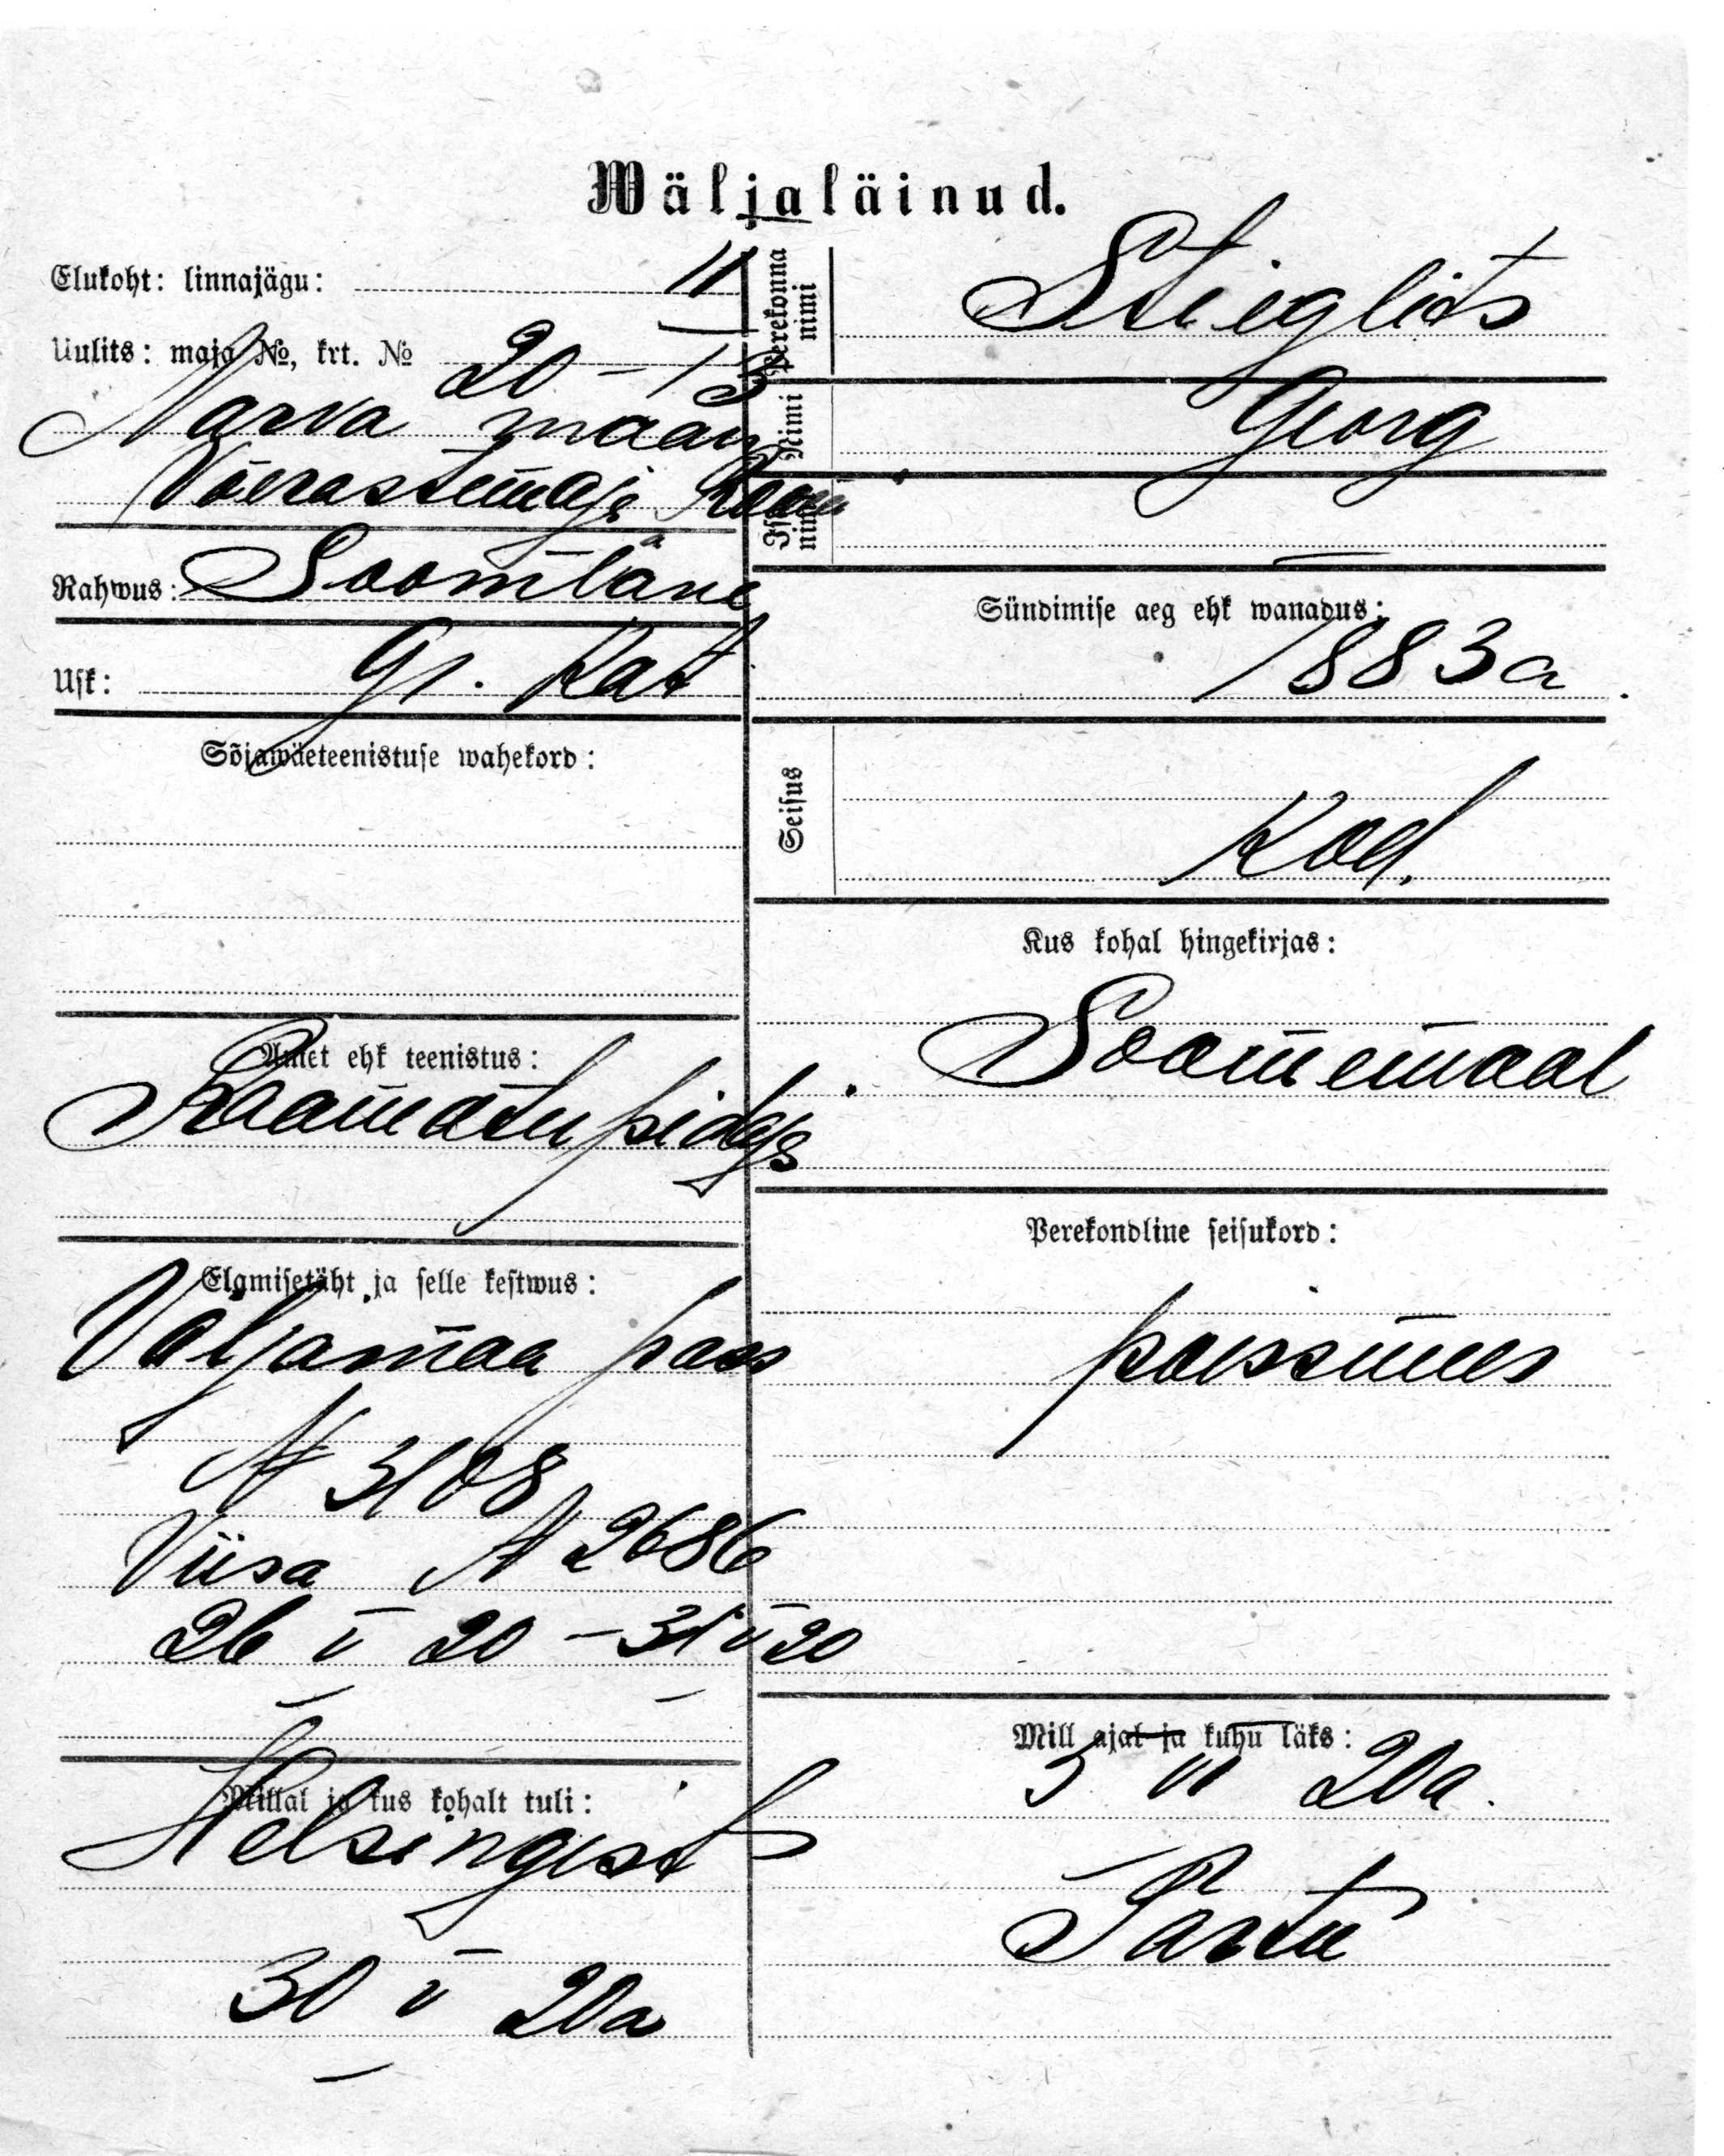 Wäljaläinud.
Elukoht: linnajägu: II
Uulits: maja №, krt. № 20 - 13
Narva maan
Võerastemaja
Rahwus: Soomlane
Usk: gr. Kat
Sõjawäeteenistuse wahekord:
Amet ehk teenistus:
Raamatupidaja
Elamisetäht ja selle kestwus:
Väljamaa pass
N 3108
Viisa N 2686
26 V 20 - 31 V 20
Millal ja kus kohalt tuli:
Helsingist
30 V 20a
Perekonna nimi
Stieglits
Nimi
Georg
Isa nimi
—
Sündimise aeg ehk wanadus:
1883a.
Seisus
Kod.
Kus kohal hingekirjas:
Soomemaal
Perekondline seisukord:
poissmees
Mill ajal ja kuhu läks:
3 VI 20a.
Tartu